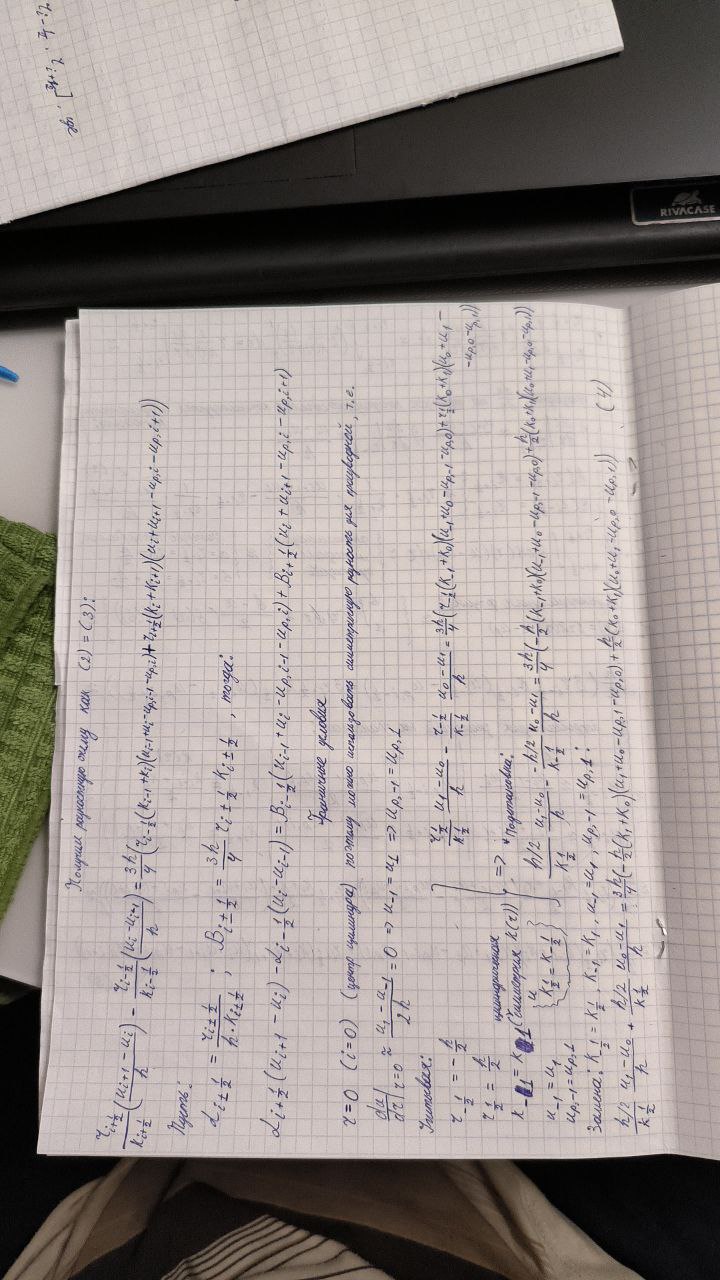 Получим разностную схему как (2) = (3):
\frac{r_{i+\frac{1}{2}}}{k_{i+\frac{1}{2}}} \left(\frac{u_{i+1} - u_i}{h}\right) - \frac{r_{i-\frac{1}{2}}}{k_{i-\frac{1}{2}}} \left(\frac{u_i - u_{i-1}}{h}\right) = \frac{3h}{4} (r_{i-\frac{1}{2}} (k_{i-1} + k_i)(u_{i-1} + u_i - u_{p,i-1} - u_{p,i}) + r_{i+\frac{1}{2}} (k_i + k_{i+1})(u_i + u_{i+1} - u_{p,i} - u_{p,i+1}))
Пусть:
α_{i±\frac{1}{2}} = \frac{r_{i±\frac{1}{2}}}{h · k_{i±\frac{1}{2}}} ; β_{i±\frac{1}{2}} = \frac{3h}{4} r_{i±\frac{1}{2}} k_{i±\frac{1}{2}} , тогда:
α_{i+\frac{1}{2}} (u_{i+1} - u_i) - α_{i-\frac{1}{2}} (u_i - u_{i-1}) = β_{i-\frac{1}{2}} (u_{i-1} + u_i - u_{p,i-1} - u_{p,i}) + β_{i+\frac{1}{2}} (u_i + u_{i+1} - u_{p,i} - u_{p,i+1})
Граничные условия
r=0 (i=0) (центр цилиндра) поэтому можно использовать симметричную разность для производной, т.е.
\frac{du}{dr}|_{r=0} ≈ \frac{u_1 - u_{-1}}{2h} = 0 => u_{-1} = u_1 => u_{p,-1} = u_{p,1}
Учитывая:
r_{-\frac{1}{2}} = -\frac{h}{2}
r_{\frac{1}{2}} = \frac{h}{2}
k_{-1} = k_1 (цилиндрическая симметрия k(r))
и
k_{\frac{1}{2}} = k_{-\frac{1}{2}}
u_{-1} = u_1
u_{p,-1} = u_{p,1}
=>
\frac{r_{\frac{1}{2}}}{k_{\frac{1}{2}}} \frac{u_1 - u_0}{h} - \frac{r_{-\frac{1}{2}}}{k_{-\frac{1}{2}}} \frac{u_0 - u_1}{h} = \frac{3h}{4} (r_{-\frac{1}{2}} (k_{-1} + k_0)(u_{-1} + u_0 - u_{p,-1} - u_{p,0}) + r_{\frac{1}{2}} (k_0 + k_1)(u_0 + u_1 -
- u_{p,0} - u_{p,1}))
* Подстановка:
\frac{h/2}{k_{\frac{1}{2}}} \frac{u_1 - u_0}{h} - \frac{-h/2}{k_{-\frac{1}{2}}} \frac{u_0 - u_1}{h} = \frac{3h}{4} (-\frac{h}{2} (k_{-1} + k_0)(u_{-1} + u_0 - u_{p,-1} - u_{p,0}) + \frac{h}{2} (k_0 + k_1)(u_0 + u_1 - u_{p,0} - u_{p,1}))
Замена: k_{-\frac{1}{2}} = k_{\frac{1}{2}}, k_{-1} = k_1, u_{-1} = u_1, u_{p,-1} = u_{p,1}:
\frac{h/2}{k_{\frac{1}{2}}} \frac{u_1 - u_0}{h} + \frac{h/2}{k_{\frac{1}{2}}} \frac{u_0 - u_1}{h} = \frac{3h}{4} (-\frac{h}{2} (k_1 + k_0)(u_1 + u_0 - u_{p,1} - u_{p,0}) + \frac{h}{2} (k_0 + k_1)(u_0 + u_1 - u_{p,0} - u_{p,1})) (4)
RIVACASE